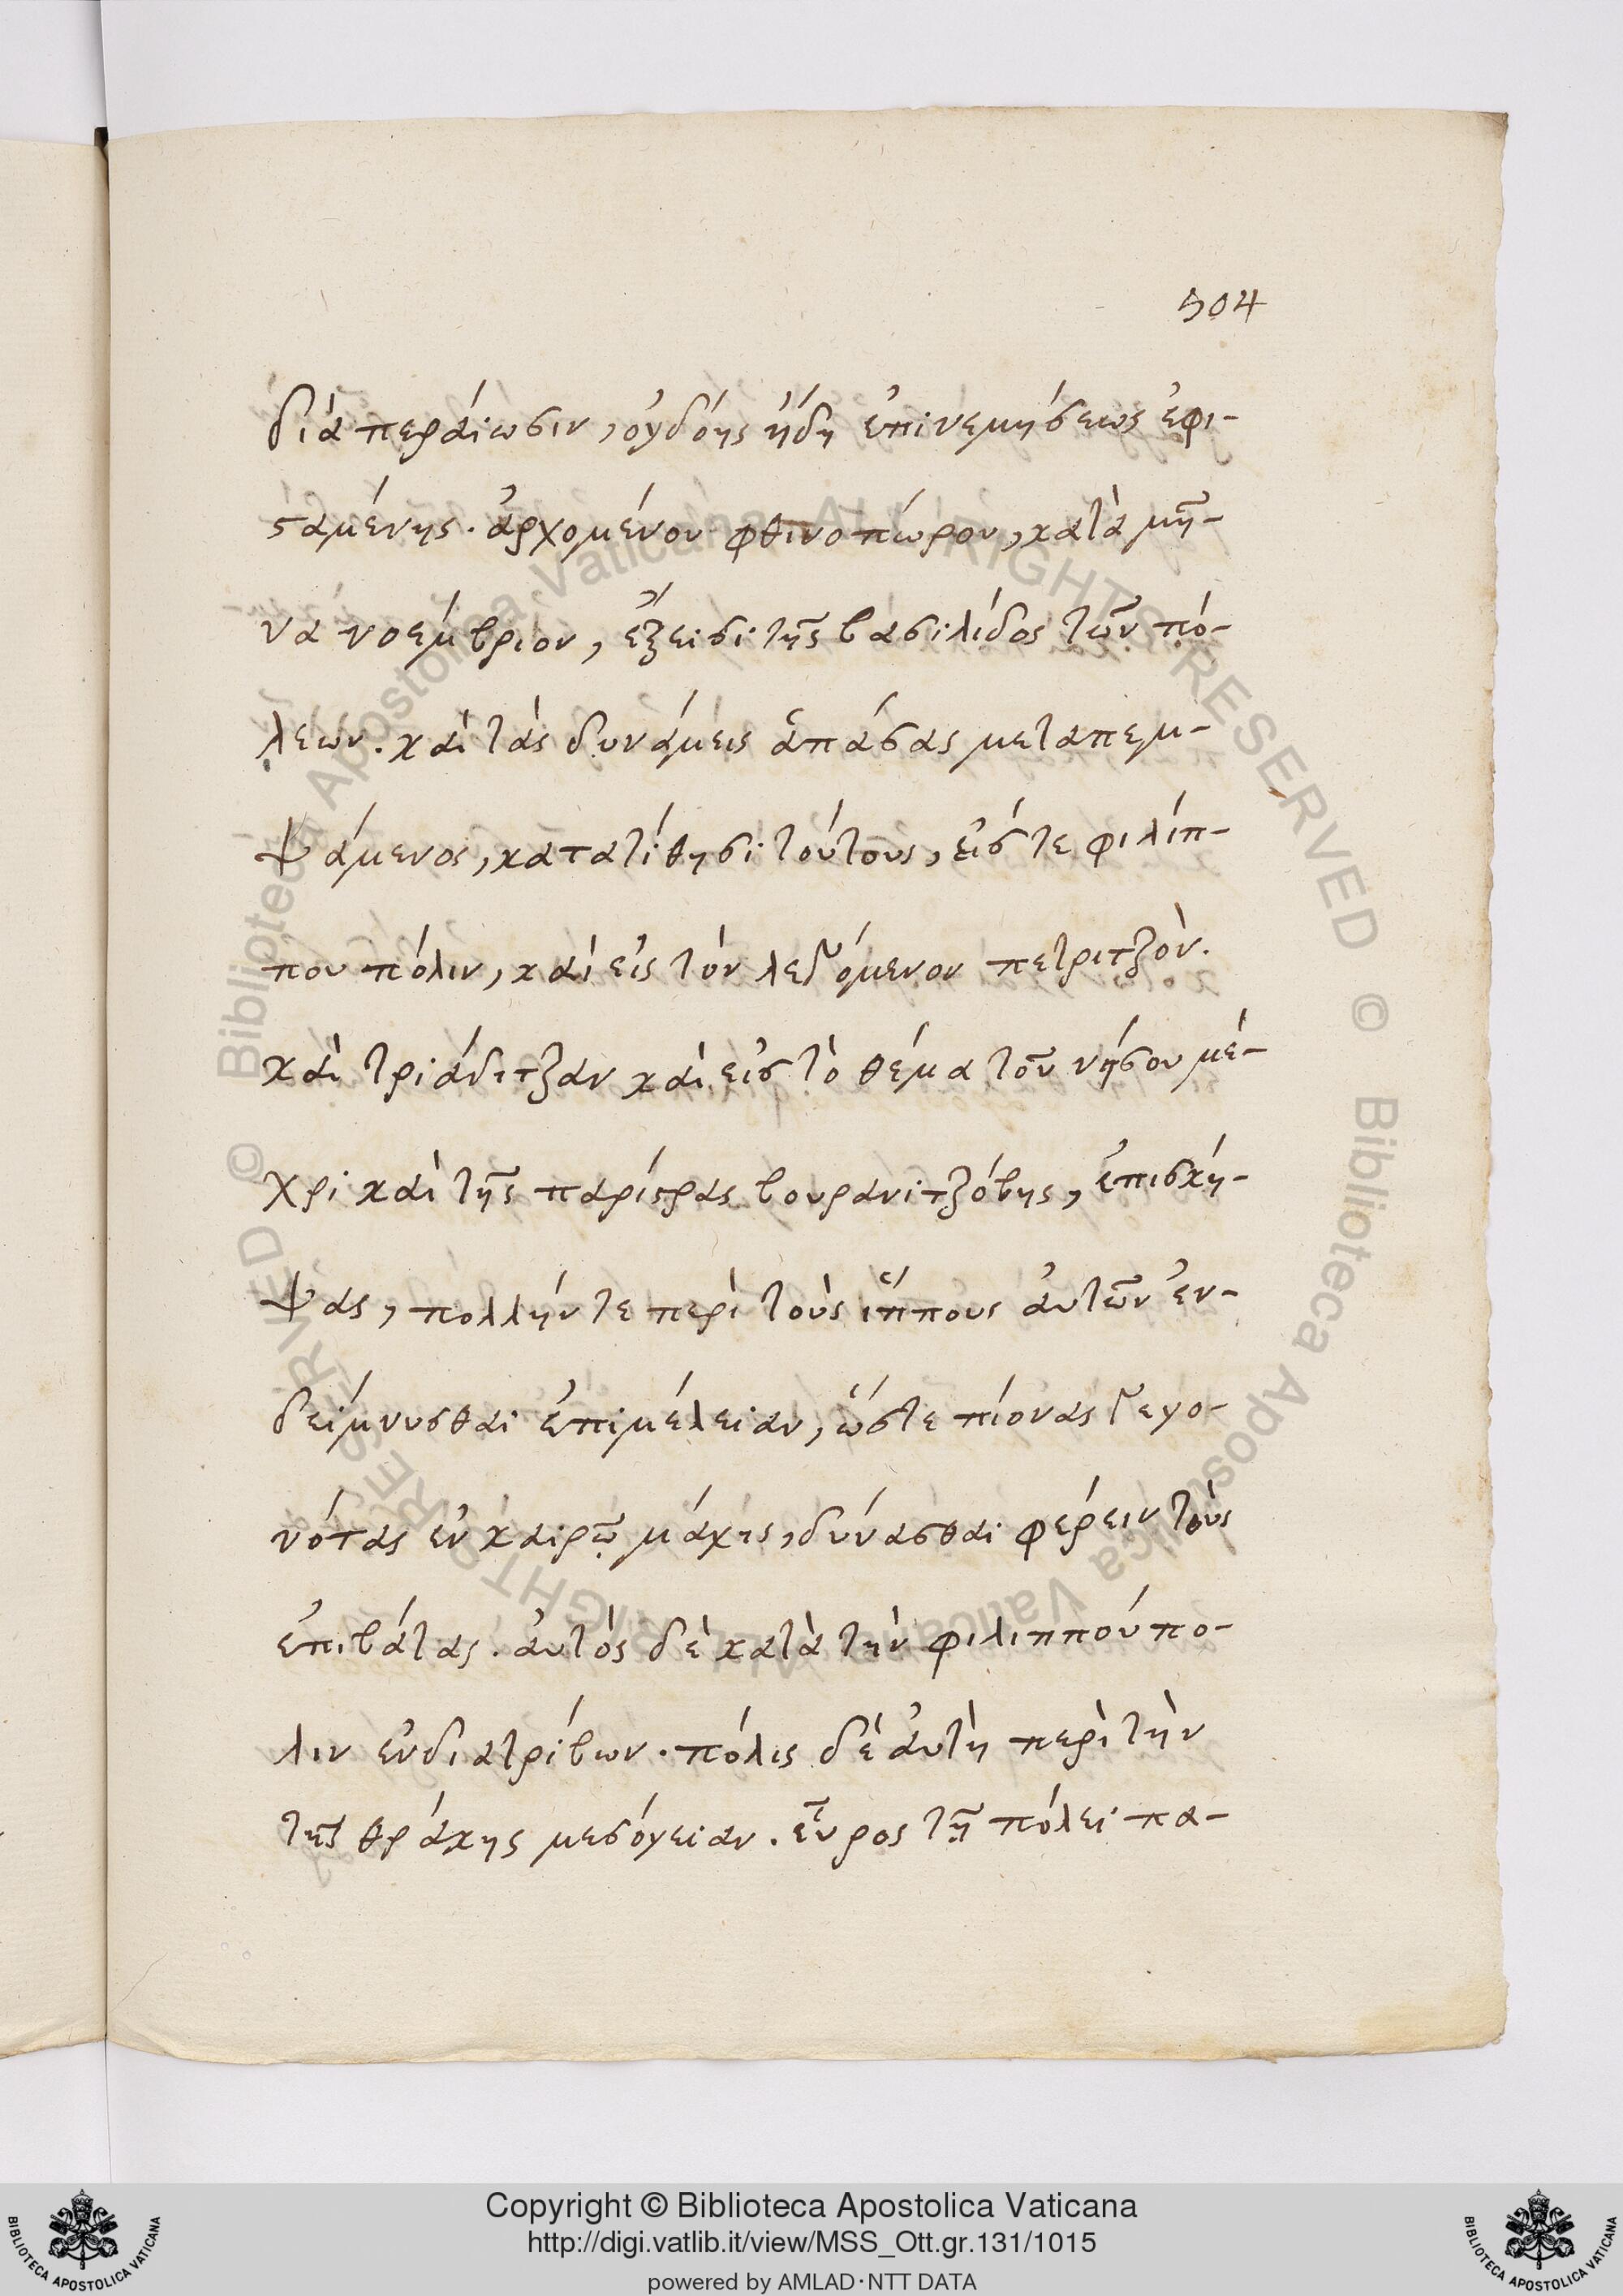 504
διαπεράιωσιν, ὀγδόης ἤδη ἐπινεμήσεως ἐφι-
σταμένης. ἀρχομένου φθινοπώρου, κατὰ μῆ-
να νοέμβριον, ἔξεισι τῆς βασιλίδος τῶν πό-
λεων. καὶ τὰς δυνάμεις ἁπάσας μεταπεμ-
ψάμενος, κατατίθησι τούτους, εἰς τε φιλίπ-
που πόλιν, καὶ εἰς τὸν λεγόμενον πετριτζὸν.
καὶ τριάδιτζαν καὶ εἰς τὸ θέμα τοῦ νήσου μέ-
χρι καὶ τῆς παρίστρας βουρανιτζόβης, ἐπισκή-
ψας, πολλήν τε περὶ τοὺς ἵππους ἀυτῶν ἐν-
δείμνυσθαι ἐπιμέλειαν, ὥστε πίονας γεγο-
νότας ἐν καιρῷ μάχης, δύνασθαι φέρειν τοὺς
ἐπιβάτας. ἀυτὸς δὲ κατὰ τὴν φιλιππούπο-
λιν ἐνδιατρίβων. πόλις δὲ ἀυτὴ περὶ τὴν
τῆς θράκης μεσόγειαν. εὖρος τῇ πόλει πα-
Copyright © Biblioteca Apostolica Vaticana
http://digi.vatlib.it/view/MSS_Ott.gr.131/1015
powered by AMLAD·NTT DATA
BIBLIOTECA APOSTOLICA VATICANA
BIBLIOTECA APOSTOLICA VATICANA
© Biblioteca Apostolica Vaticana ALL RIGHTS RESERVED © Biblioteca Apostolica Vaticana ALL RIGHTS RESERVED